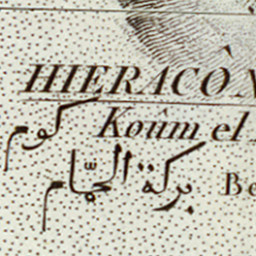 HIERACÔN
كوم Koúm el
بركة الحمّام Be